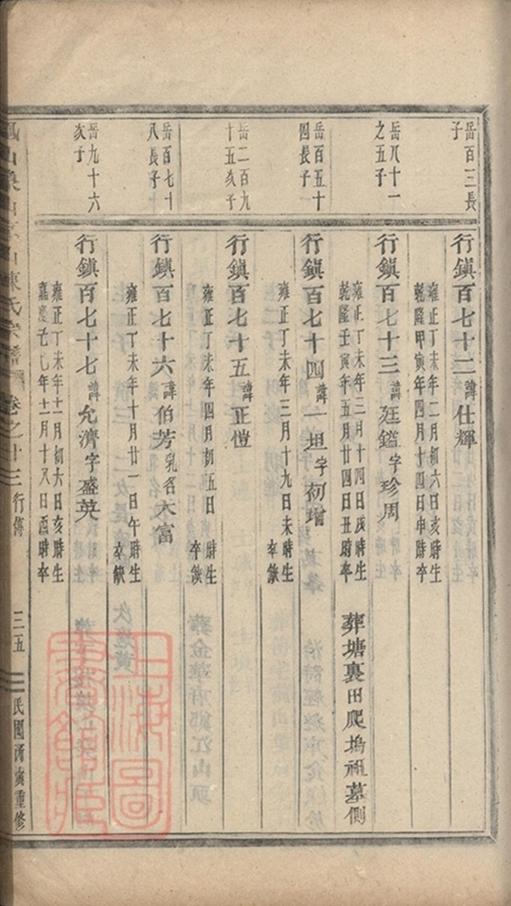 岳百三長
子
行鎮百七十二諱仕輝
雍正丁未年二月初六日亥時生
乾隆甲寅年四月十四日申時卒
岳八十一
之五子
行鎮百七十三諱廷鑑字珍周
雍正丁未年三月十四日戌時生
乾隆壬寅年五月廿四日丑時卒
葬塘裏田爬塢祖墓側
岳百五十
四長子
行鎮百七十四諱一坦字初增
雍正丁未年三月十九日未時生
卒缺
岳二百九
十五次子
行鎮百七十五諱正愷
雍正丁未年四月初五日 時生
卒缺
岳百七十
八長子
行鎮百七十六諱伯芳乳名大富
雍正丁未年十月廿一日午時生
卒缺
岳九十六
次子
行鎮百七十七諱允濟字盛英
雍正丁未年十一月初六日亥時生
嘉慶 年十一月十八日酉時卒
山 陳氏宗譜
卷之十三
行傳
三五
民國 重修